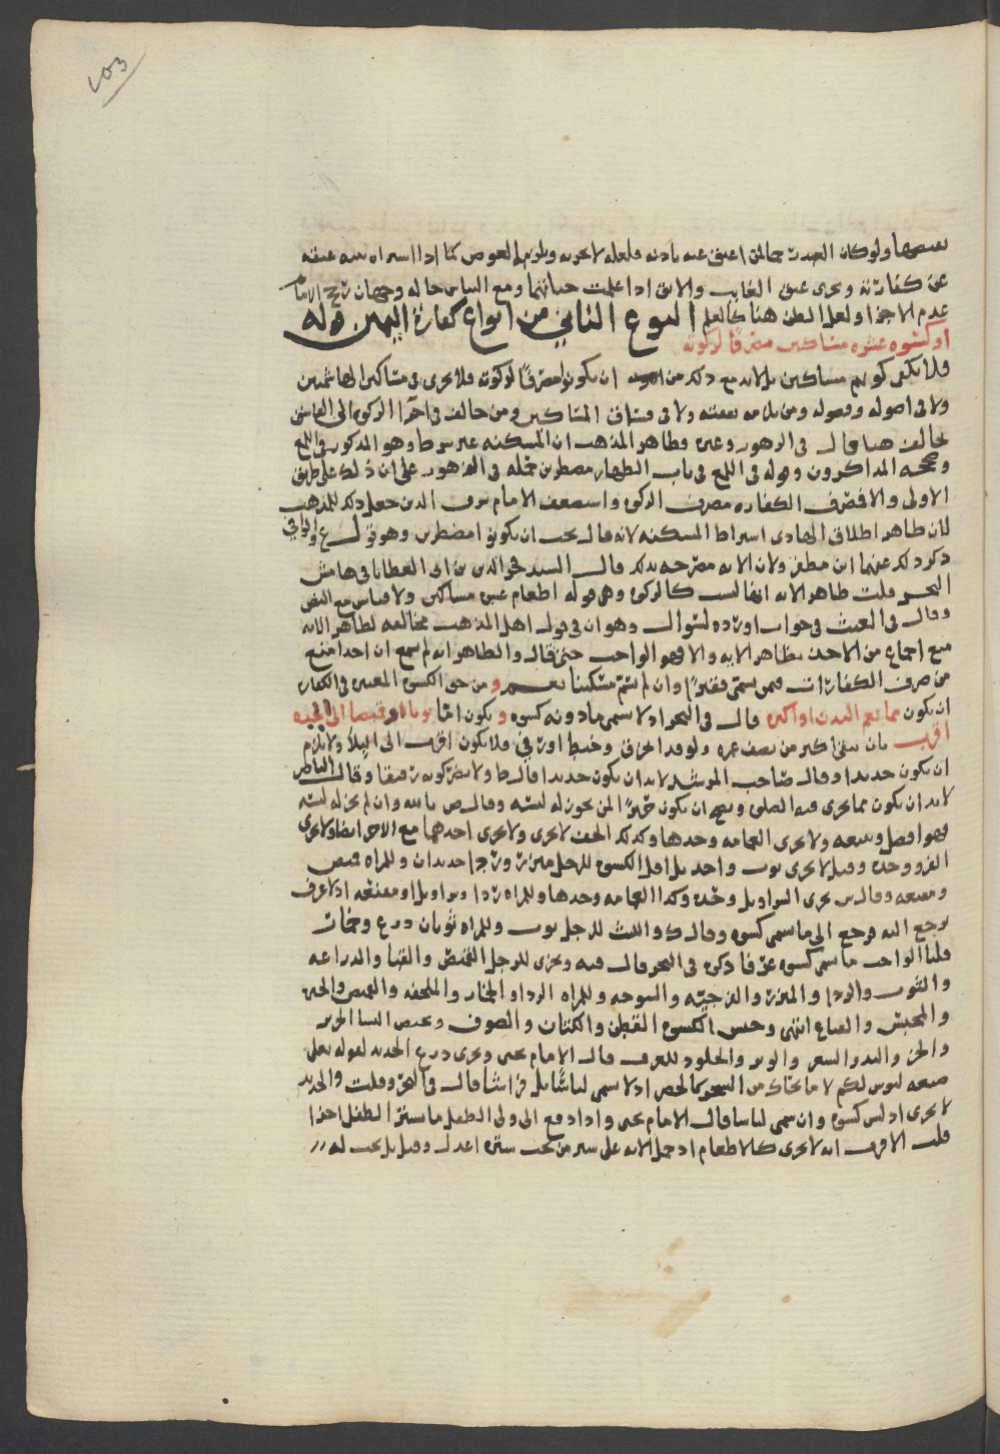 103
ولو كان العبد مما لمن اعتق عنه باذنه فلعله لا يجزيه ويلزم العوض كما اذا اشتراه عتقه
عن كفارته ويجزي عتق الغايب والابق اذا علمت حياتهما ومع التباس حاله وجهان
عدم الاجزا ولعل الظن هنا كالعلم النوع الثاني من انواع كفارة اليمين قوله
او كسوه عشره مساكين مصرفا لزكوته
فلا يكفي كونهم مساكين بل لا بد مع ذلك من ان يكونوا مصرفا لزكوته فلا يجزي في مساكين الهاشميين
ولا في اصوله وفصوله ومن يلزمه نفقته ولا في فساق المساكين ومن خالف في اجزا الزكوة الى الفاسق
يخالف هنا قال في الزهور وغيره وظاهر المذهب ان المسكنه غير شرط وهو المذكور في اللمع
وصححه المذاكرون وقوله في اللمع في باب الظهار مضطرين حمله في الزهور على ان ذلك على طريق
الاولى والا فمصرف الكفاره مصرف الزكوة واستضعف الامام شرف الدين جعل ذلك للمذهب
لان ظاهر اطلاق الهادي اشتراط المسكنه لانه قال يجب ان يكونوا مضطرين وهو
ذكر ذلك عنهما ابن مظفر ولان الايه مصرحه بذلك قال السيد فخر الدين بن ابي العطايا في هامش
البحر قلت ظاهر الايه انها ليست كالزكوة وهي قوله اطعام عشرة مساكين ولا قياس مع النص
وقال في الغيث في جواب اورده لسؤال وهو ان في قول اهل المذهب مخالفه لظاهر الايه
منع اجماع من الاخذ بظاهر الايه والا فهو الواجب حتى قال والظاهر انه لم يسمع ان احدا منع
من صرف الكفارات فمن يسمى فقيرا وان لم يسم مسكينا و من حق الكسوة المعتبره في الكفاره
ان يكون مما يعم البدن او اكثره قال في البحر اذ لا يسمى ما دونه كسوه و يكون اما ثوبا او قميصا الى الجده
اقرب بان يبقى اكثر من نصف عمره ولو قد اخرق وخيط اورقع فلا يكون اقرب الى البلا ولا يلزم
ان يكون جديدا وقال صاحب المرشد لا بد ان يكون جديدا قال ط ولا يضر كونه رقيقا وقال الناصر
لا بد ان يكون مما يجزي فيه الصلوة ويصح ان يكون حريرا لمن يجوز له لبسه وقال ص بالله وان لم يجز له لبسه
فهو افضل وبيعه ولا يجزي العمامه وحدها وكذلك الخف لا يجزي ولا يجزي احدهما مع الاخر ايضا ولا يجزي
الفرو وحده وقيل لا يجزي ثوب واحد بل اقل الكسوة للرجل ميزر وردا جديدان وللمراه قميص
ومقنعه وقال ش يجزي السراويل وحده وكذا العمامه وحدها وللمراه ردا او سراويل او مقنعه اذ لا عرف
يرجع اليه فرجع الى ما سمي كسوه وقال ك والليث للرجل ثوب وللمراه ثوبان درع وخمار
قلنا الواجب ما سمي كسوه عرفا ذكره في البحر قال فيه ويجزي للرجل القميص والقبا والدراعه
والثوب والردا والميزر والفرجيه والسوحه وللمراه الردا والخمار والملحفه والقميص والجبه
والمحبش والقناع انتهى وجنس الكسوة القطن والكتان والصوف ويختص النسا الحرير
والخز واللبد والشعر والوبر والجلود للعرف قال الامام يحيى ويجزي درع الحديد لقوله تعالى
صنعه لبوس لكم لا ما يحاك من الشجر كالحصر اذ لا يسمى لباسا بل فراشا قال في البحر وقلت والحديد
لا يجزي اذ ليس كسوه وان سمي لباسا قال الامام يحيى واذا دفع الى ولي الطفل ما يستر الطفل اجزا
قلت الاقرب انه لا يجزي كالاطعام اذ حمل الايه على ستر من يجب ستره اعدل وقيل بل يجب له